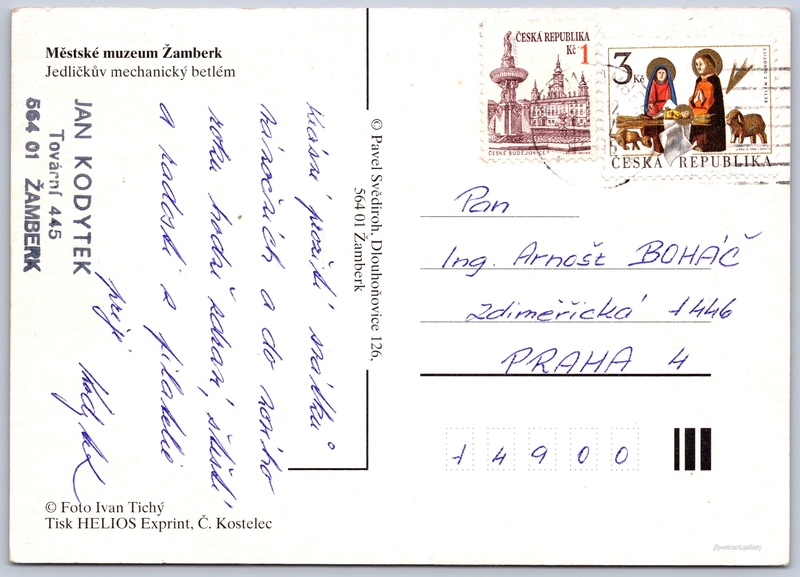 Městské muzeum Žamberk
Jedličkův mechanický betlém
JAN KODYTEK
Tovární 445
564 01 ŽAMBERK
Krásné prožití svátků
vánočních a do nového
roku hodně zdraví, štěstí
a radosti s filatelií
přeje Kodytek
© Pavel Svědiroh, Dlouhoňovice 126,
564 01 Žamberk
ČESKÁ REPUBLIKA
Kč 1
ČESKÉ BUDĚJOVICE
3 Kč
ČESKÁ REPUBLIKA
Pan
Ing. Arnošt BOHÁČ
Zdiměřická 1446
PRAHA 4
14900
© Foto Ivan Tichý
Tisk HELIOS Exprint, Č. Kostelec